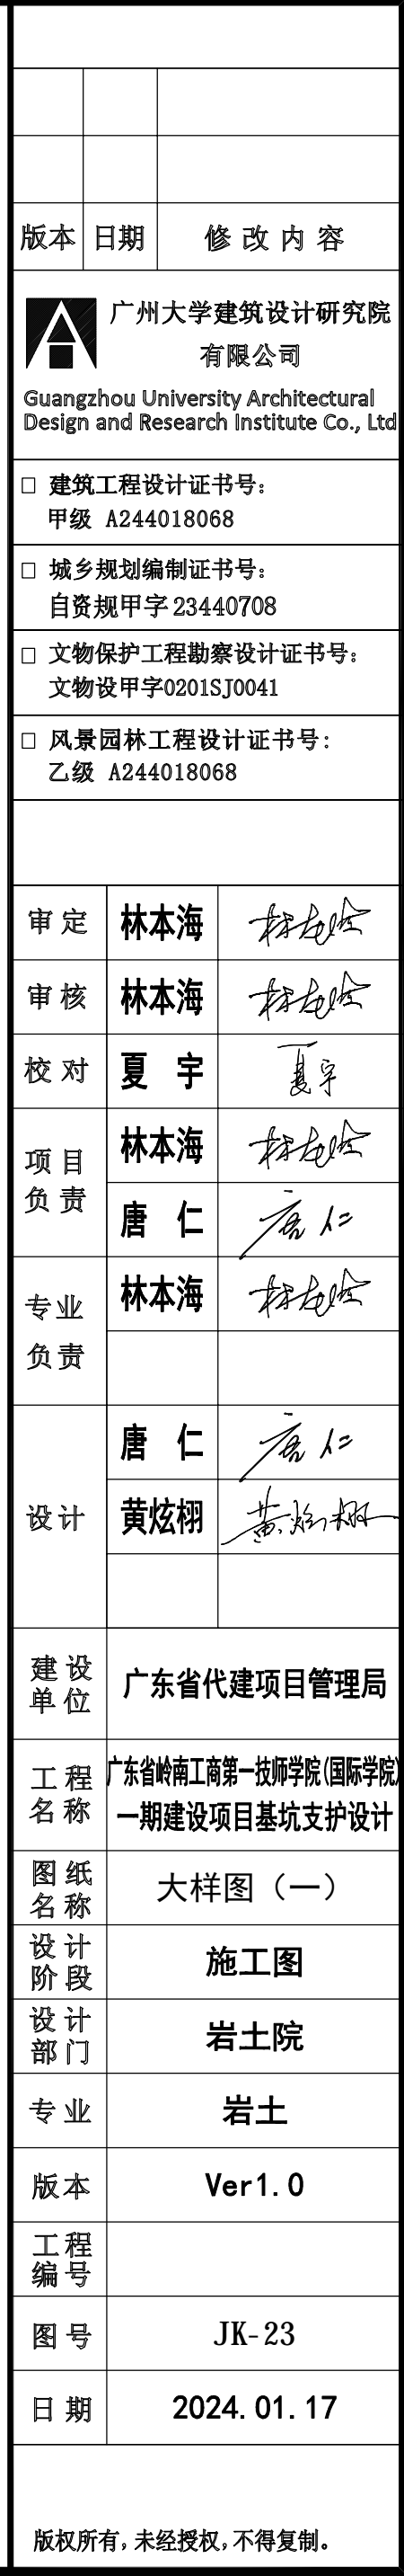 版本 日期 修改内容
广州大学建筑设计研究院
有限公司
Guangzhou University Architectural
Design and Research Institute Co., Ltd
□ 建筑工程设计证书号:
甲级 A244018068
□ 城乡规划编制证书号:
自资规甲字23440708
□ 文物保护工程勘察设计证书号:
文物设甲字0201SJ0041
□ 风景园林工程设计证书号:
乙级 A244018068
审定 林本海 林本海
审核 林本海 林本海
校对 夏 宇 夏宇
项目
负责
林本海 林本海
唐 仁 唐仁
专业
负责
林本海 林本海
设计
唐 仁 唐仁
黄炫栩 黄炫栩
建设
单位
广东省代建项目管理局
工程
名称
广东省岭南工商第一技师学院(国际学院)
一期建设项目基坑支护设计
图纸
名称
大样图（一）
设计
阶段
施工图
设计
部门
岩土院
专业 岩土
版本 Ver1.0
工程
编号
图号 JK-23
日期 2024.01.17
版权所有,未经授权,不得复制。